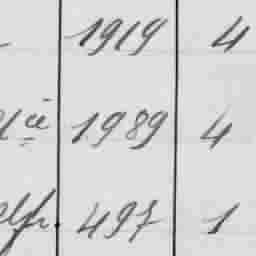 1919 4
1989 4
497 1